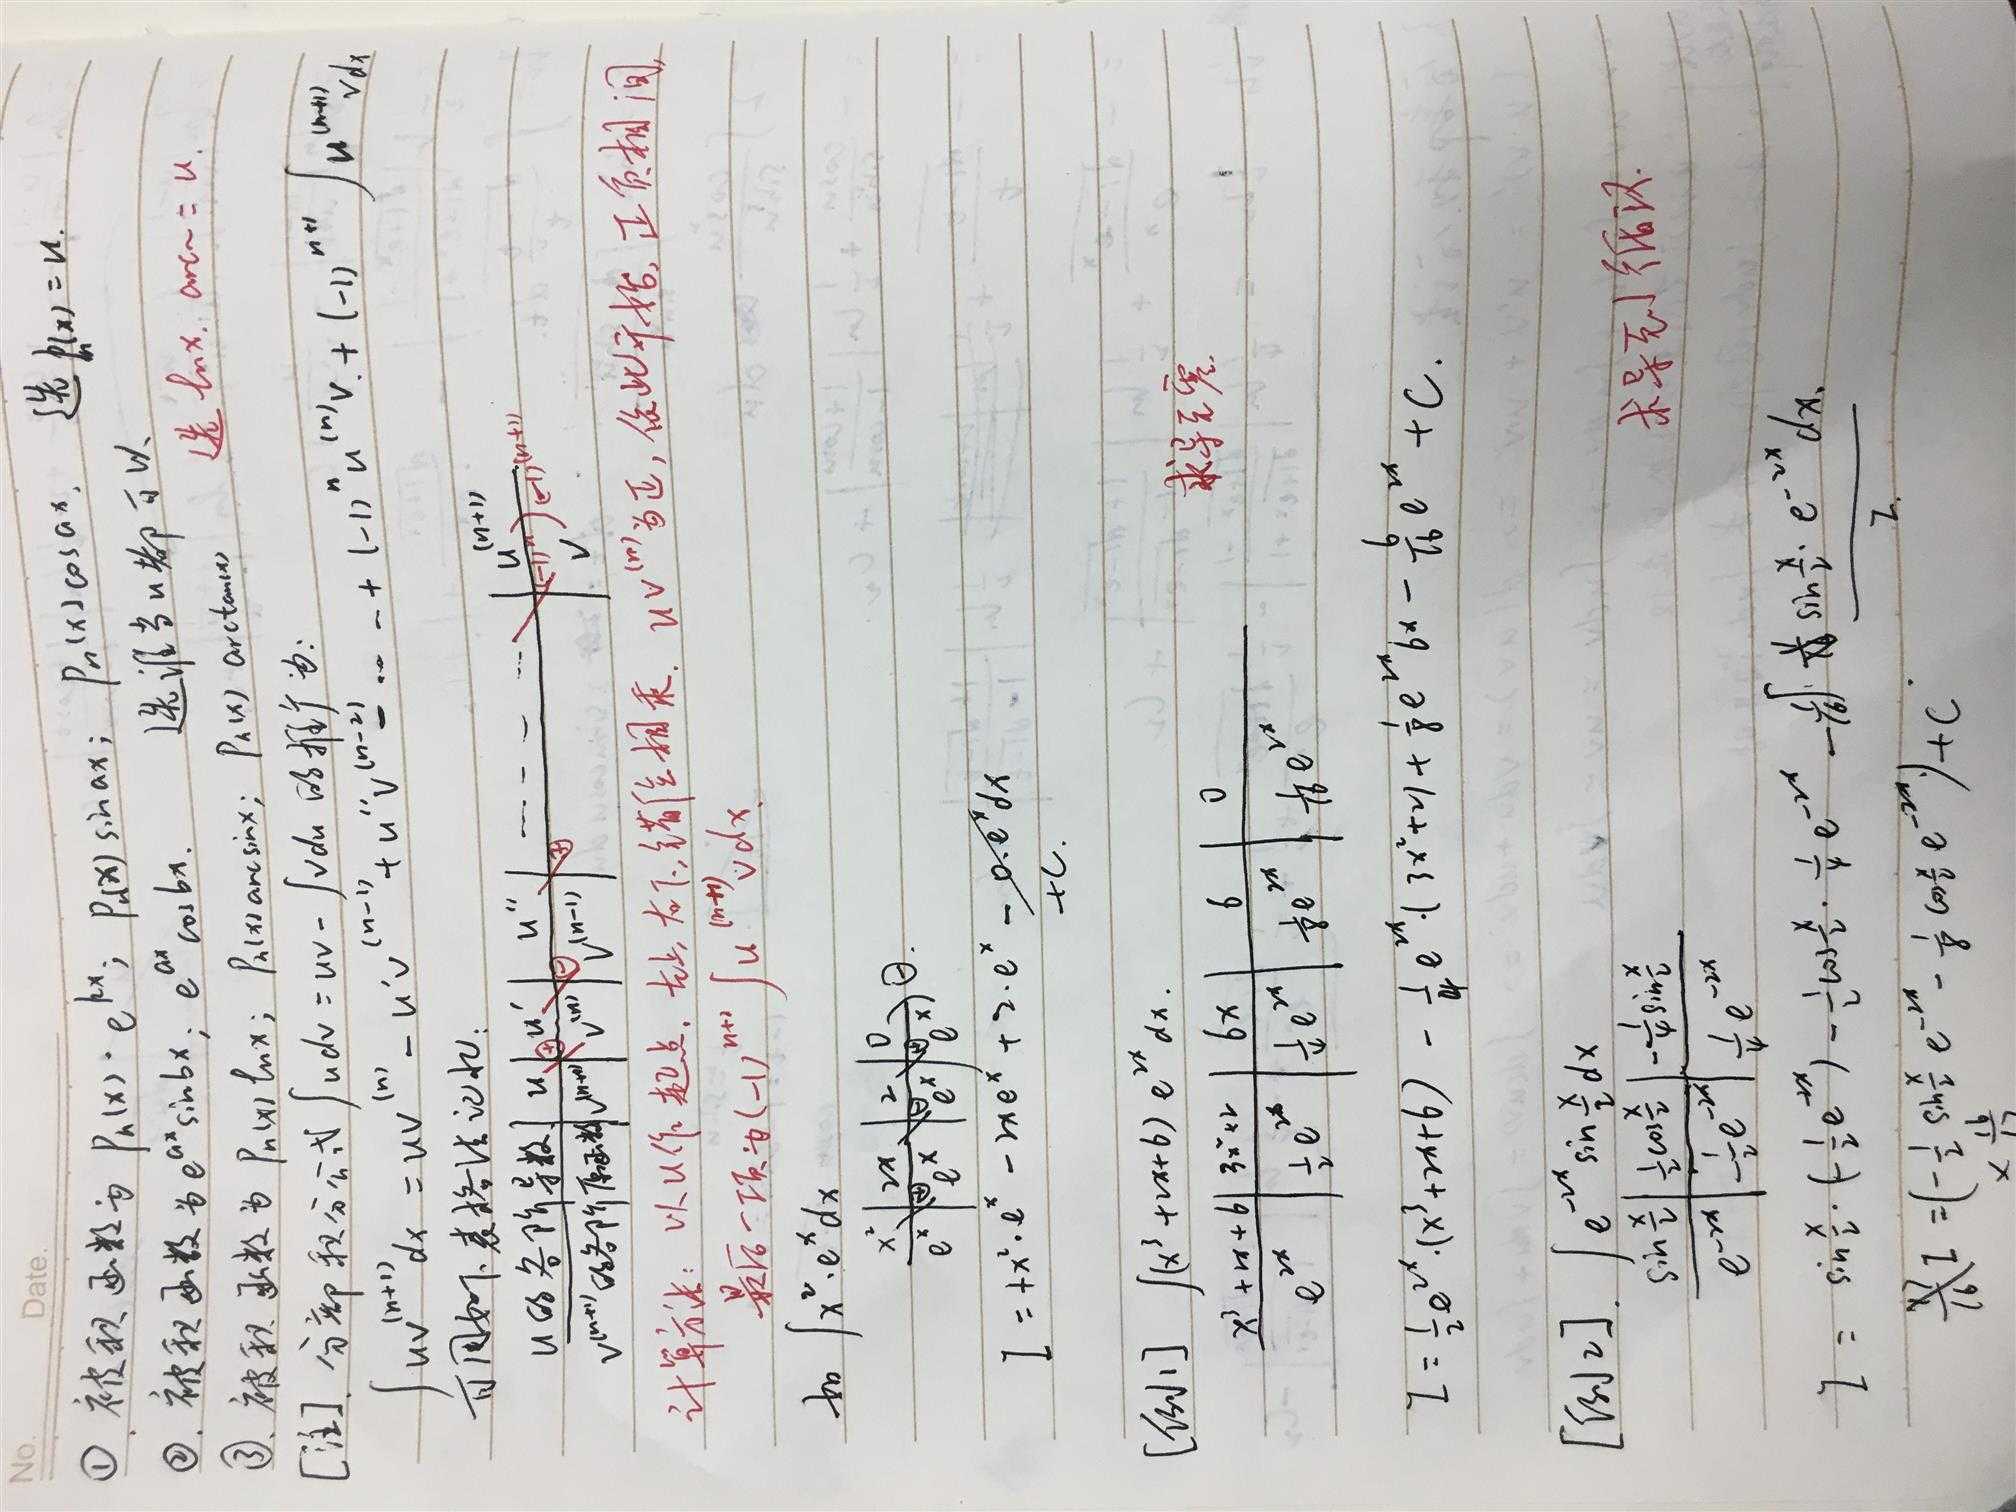 No.
Date.
① 被积函数为 Pₙ(x)·e^{kx}; Pₙ(x) sin ax; Pₙ(x) cos ax. 选 Pₙ(x) = u.
② 被积函数为 e^{ax} sin bx; e^{ax} cos bx. 选谁当u都可以.
③ 被积函数为 Pₙ(x) ln x; Pₙ(x) arcsin x; Pₙ(x) arctan(x) 选 ln x. arc~ = u.
[注]. 分部积分公式 ∫udv = uv - ∫vdu 的推广为:
∫uv^{(n+1)} dx = uv^{(n)} - u'v^{(n-1)} + u''v^{(n-2)} - … + (-1)^n u^{(n)}v + (-1)^{n+1} ∫u^{(n+1)} v dx
可用如下表格法记忆:
u的各阶导数 | u | u' | u'' | … | u^{(n+1)}
v^{(n+1)}的各阶原函数 | v^{(n+1)} | v^{(n)} | v^{(n-1)} | v
⊕ ⊖ ⊕ (-1)^n (-1)^{(n+1)}
计算方法: 以u作起点, 左上, 右下, 错位相乘. uv^{(n)}为正, 依此开始, 正负相间,
最后一项为 (-1)^{n+1} ∫u^{(n+1)} v dx.
如 ∫x²·e^x dx
x² | 2x | 2 | 0
e^x | e^x | e^x | e^x
⊕ ⊖ ⊕ ⊖.
I = +x²·e^x - 2xe^x + 2·e^x - ∫0·e^x dx
+C.
[例1] ∫(x³+2x+6) e^{2x} dx.
求导至零
x³+2x+6 | 3x²+2 | 6x | 6 | 0
e^{2x} | ½e^{2x} | ¼e^{2x} | ⅛e^{2x} | 1/16 e^{2x}
I = ½e^{2x}·(x³+2x+6) - ¼e^{2x}·(3x²+2) + ⅛e^{2x} 6x - 6/16 e^{2x} + C.
[例2]. ∫e^{-2x} sin x/2 dx
求导无尽循环.
sin x/2 | ½cos x/2 | -¼ sin x/2
e^{-2x} | -½e^{-2x} | ¼e^{-2x}
I = sin x/2 · (-½e^{-2x}) - ½cos x/2 · ¼e^{-2x} - 1/16 ∫ sin x/2 · e^{-2x} dx.
I.
17/16 I = (-½ sin x/2 e^{-2x} - ⅛ cos x/2 e^{-2x}) + C.
× 16/17